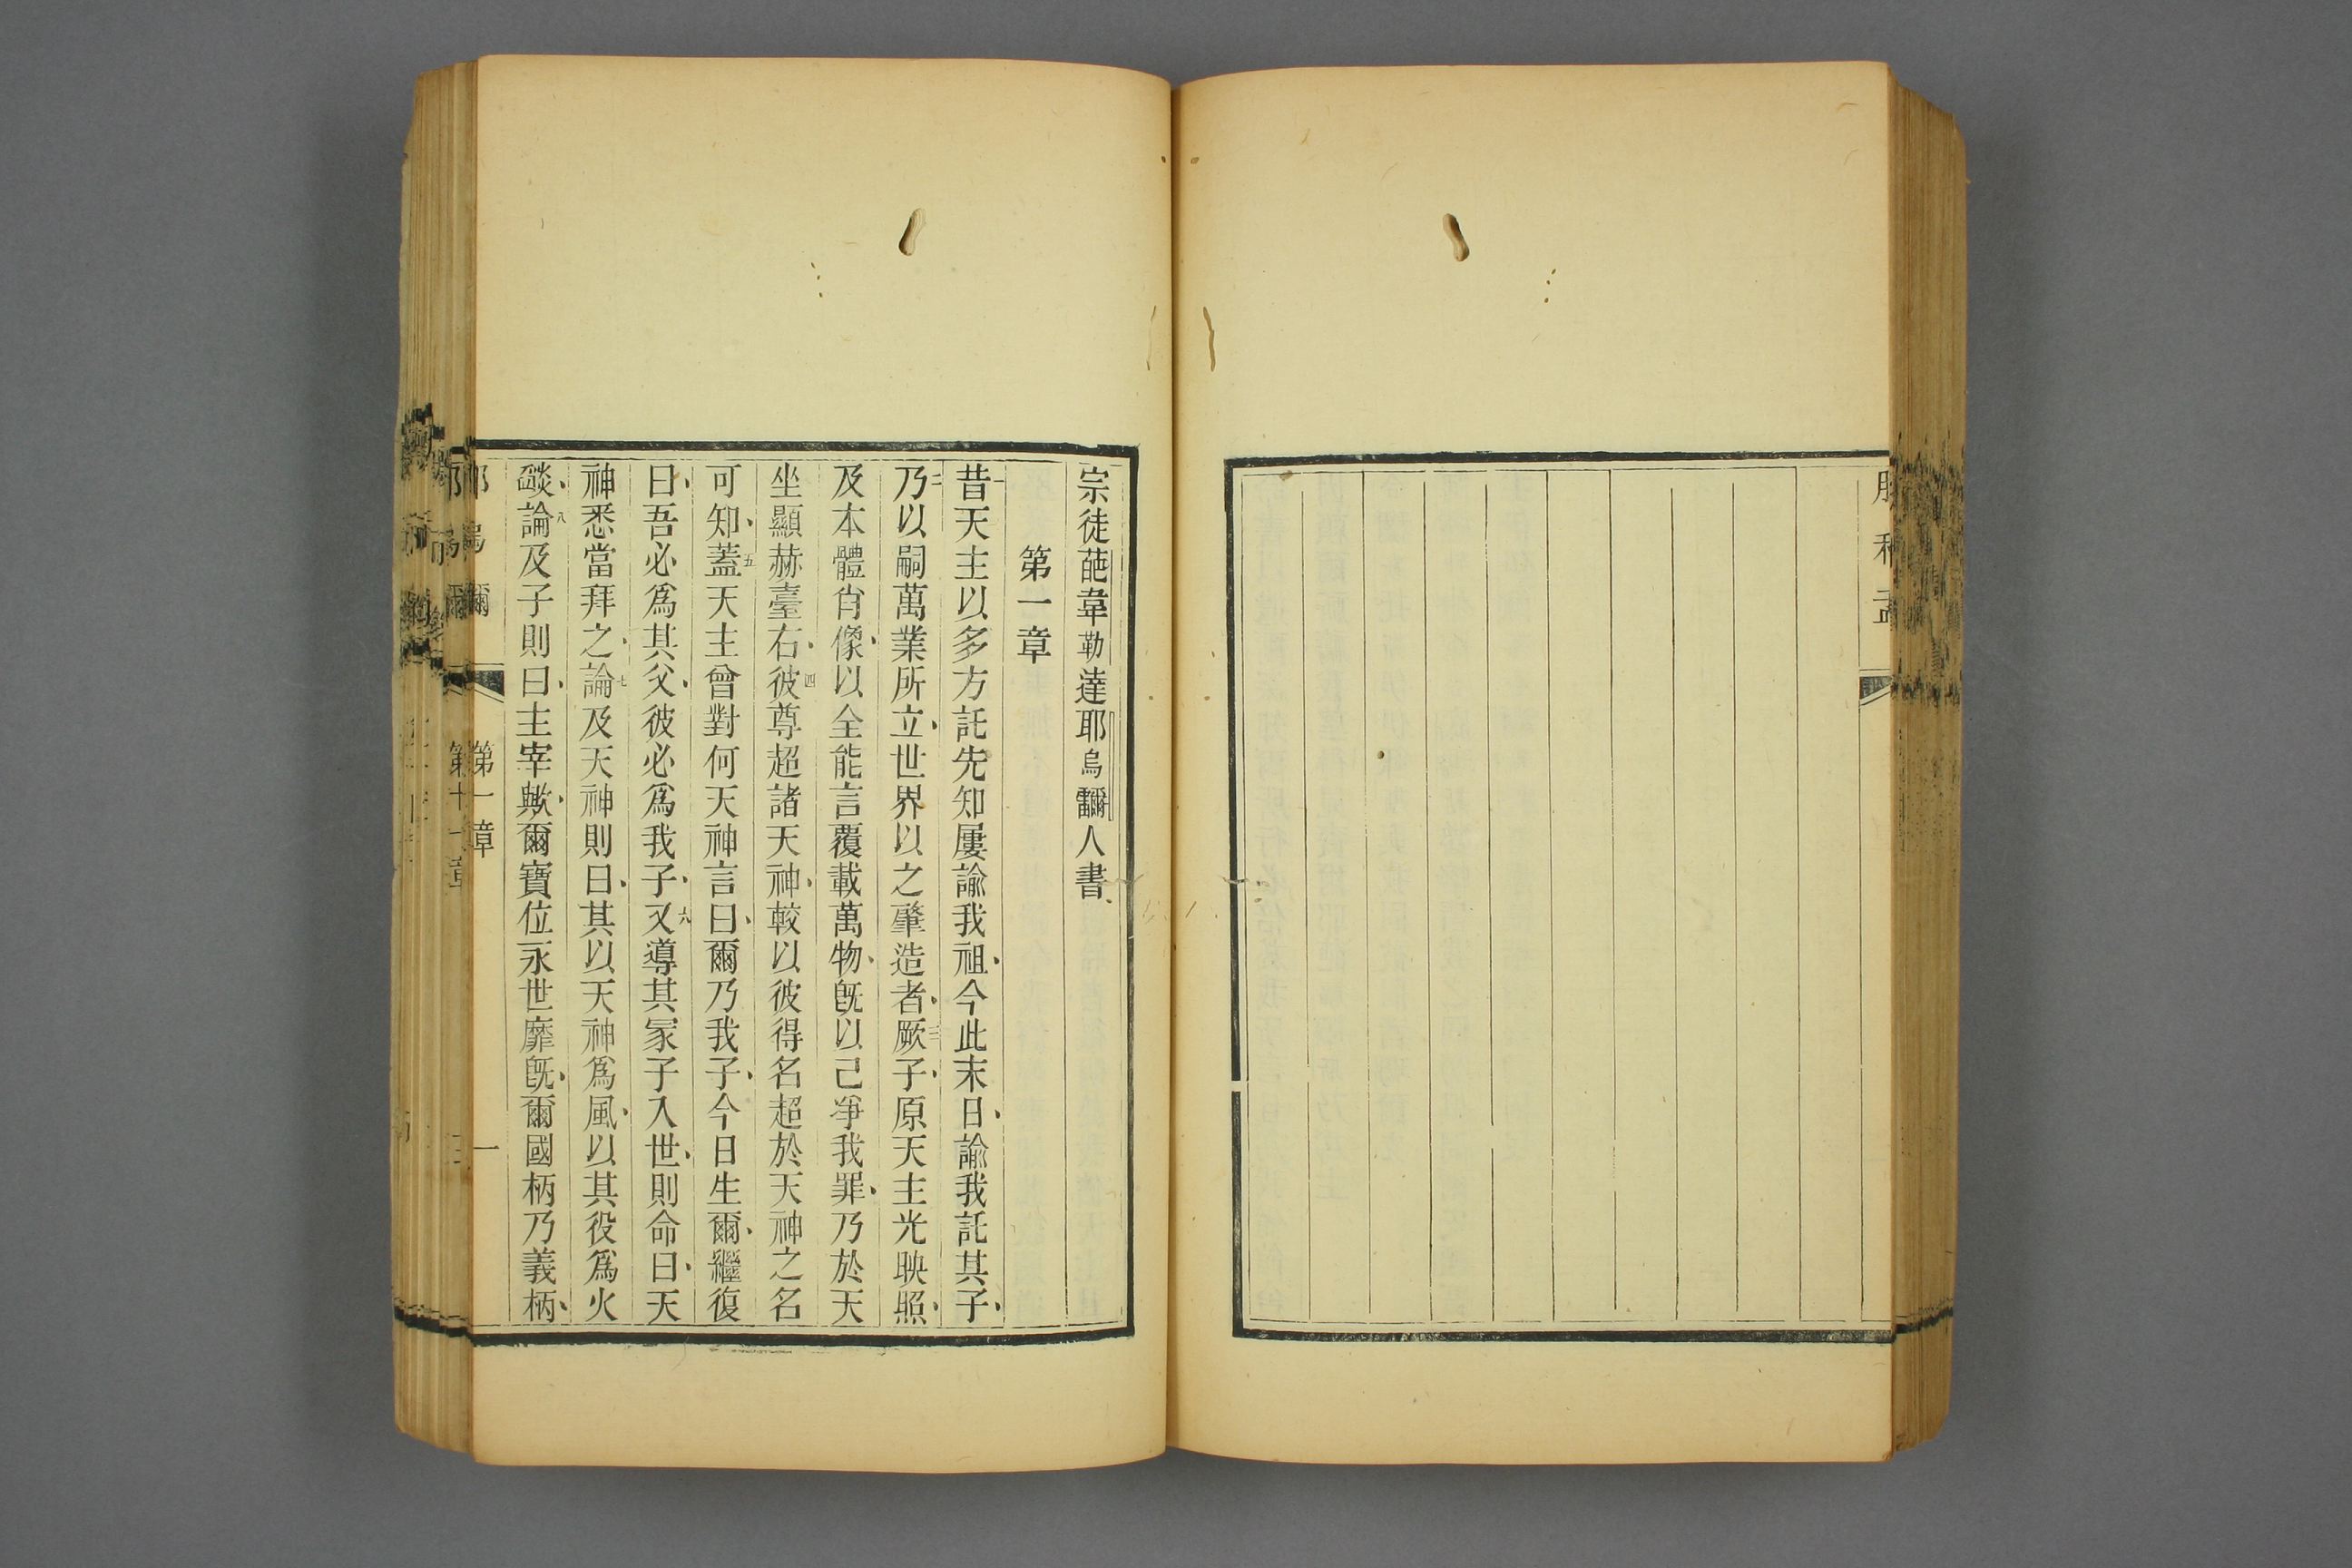 宗徒葩韋勒達耶烏爾人書
第一章
一昔天主以多方託先知屢諭我祖今此末日諭我託其子
二乃以嗣萬業所立世界以之肇造者三厥子原天主光映照
及本體肖像以全能言覆載萬物旣以己爭我罪乃於天
坐顯赫臺右四彼尊超諸天神較以彼得名超於天神之名
可知五蓋天主曾對何天神言曰爾乃我子今日生爾繼復
曰吾必爲其父彼必爲我子六又導其冢子入世則命曰天
神悉當拜之七論及天神則曰其以天神爲風以其役爲火
燄八論及子則曰主宰歟爾寶位永世靡旣爾國柄乃義柄
耶烏爾
第一章
一